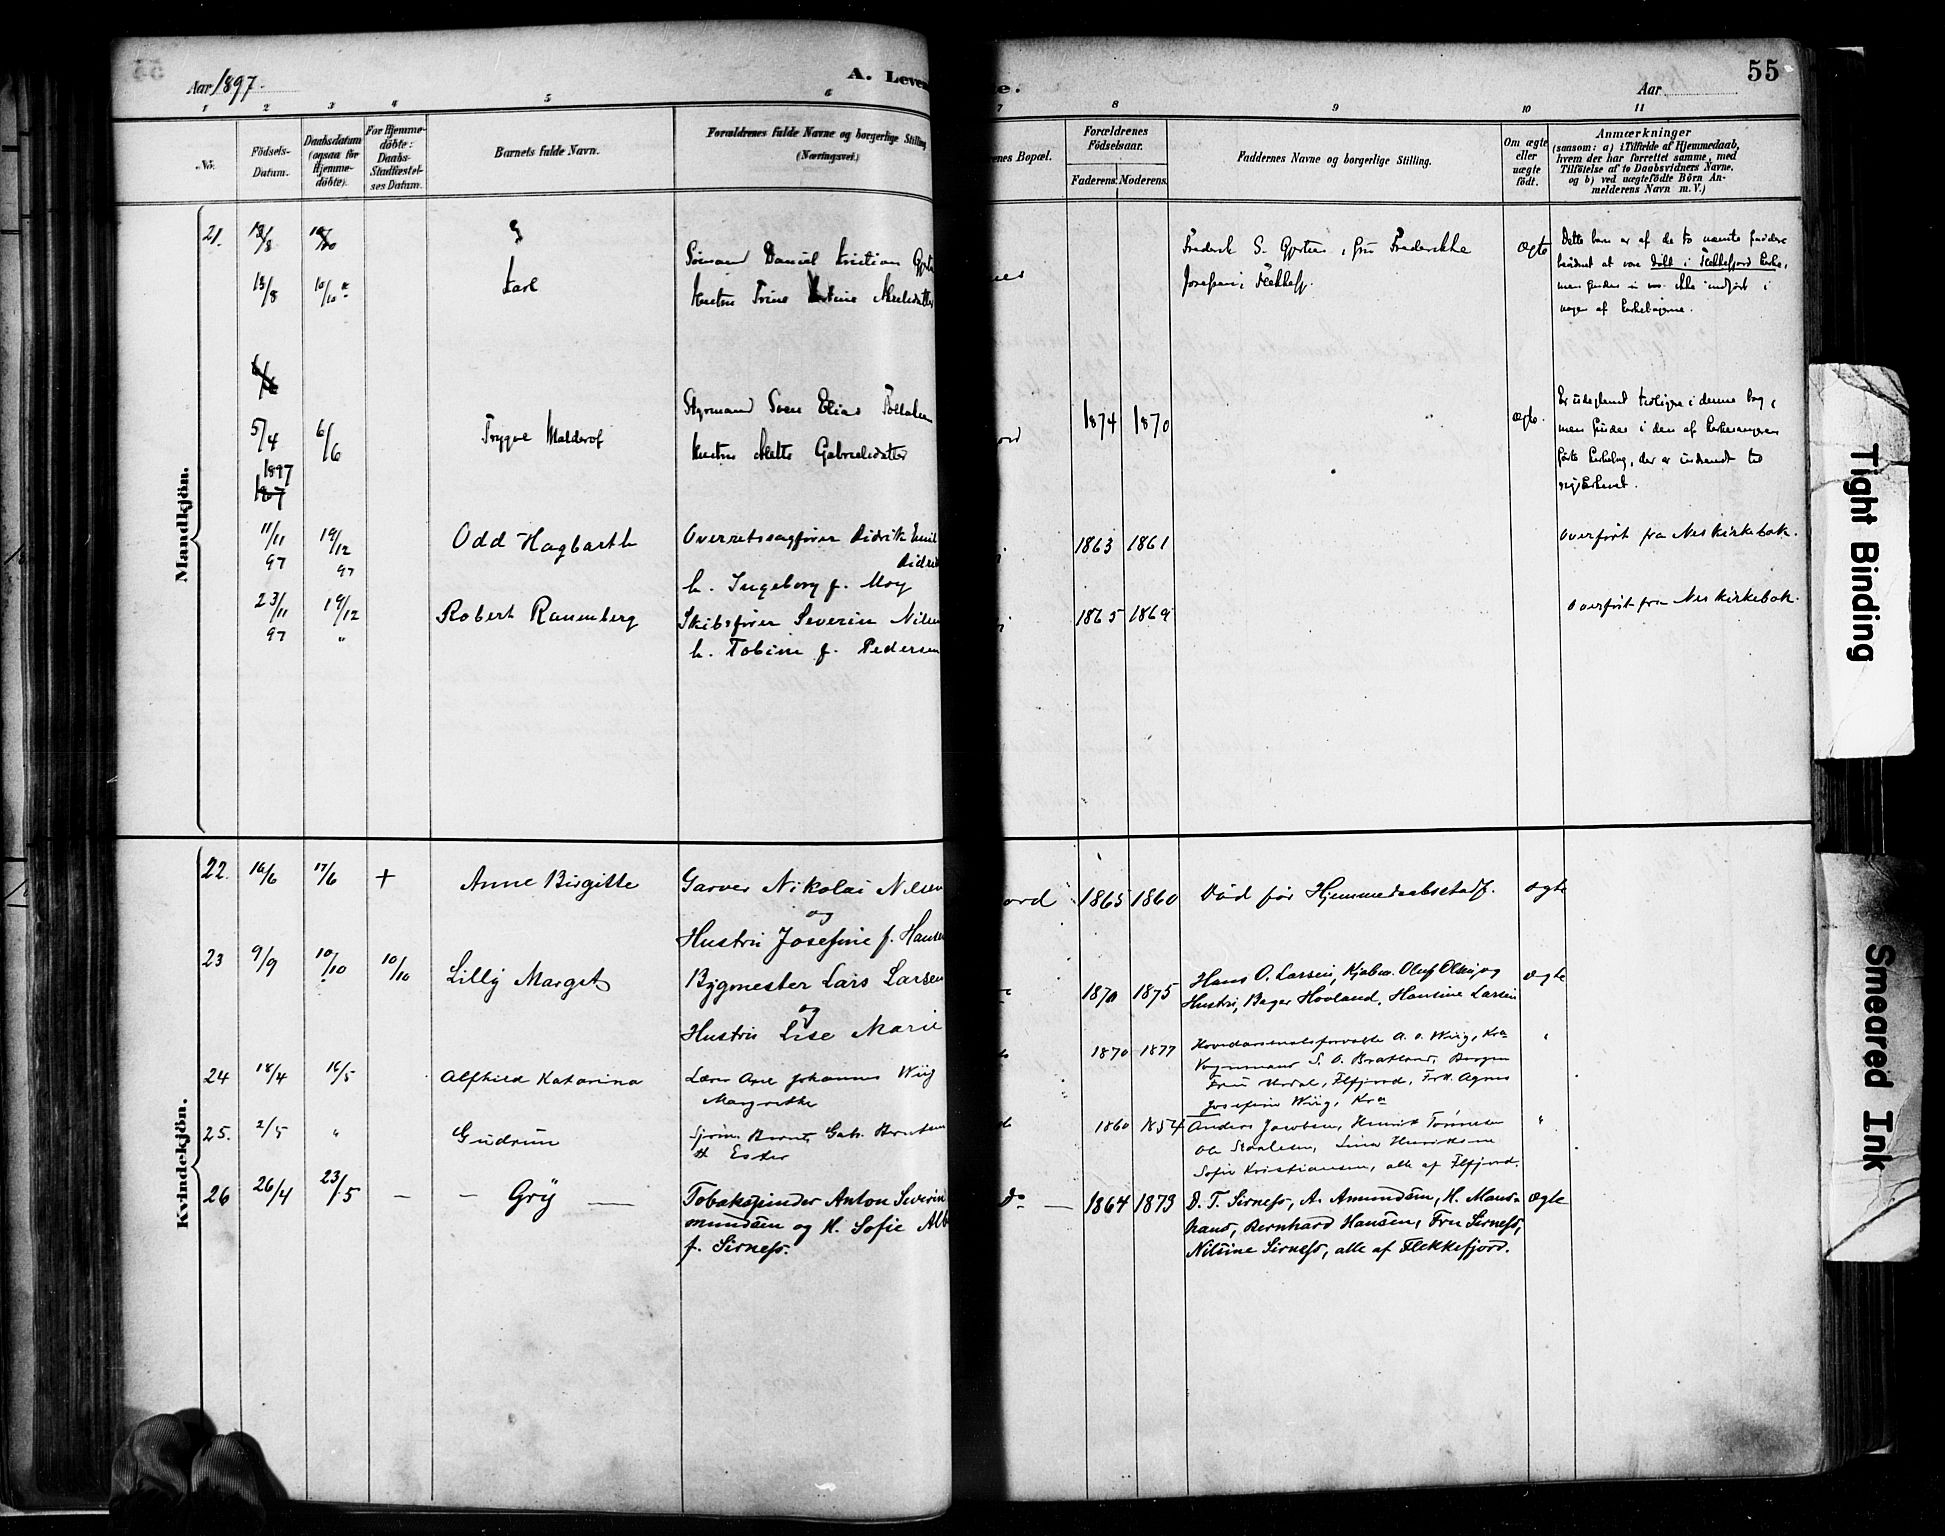 55
Aar 1897.
A. Leven
e.
55
Aar
1 2 3 4 5 6 7 8 9 10 11
No.
Födsels-
Datum.
Daabsdatum
(ogsaa for
Hjemme-
döbte).
For Hjemme-
döbte:
Daabs-
Stadfæstel-
ses Datum.
Barnets fulde Navn.
Forældrenes fulde Navne og borgerlige Stilling
(Næringsvei.)
renes Bopæl.
Forældrenes
Födselsaar.
Faderens. Moderens.
Faddernes Navne og borgerlige Stilling.
Om ægte
eller
uægte
födt.
Anmærkninger
(saasom: a) i Tilfælde af Hjemmedaab,
hvem der har forrettet samme, med
Tilföielse af to Daabsvidners Navne,
og b) ved uægtefödte Börn An-
melderens Navn m. V.)
Mandkjön.
21.
13/8
15/8
10/10
Karl
Sömand Daniel Kristian
Trine
Frederik S. Gjertsen, Fru Frederikke
Josefsen, Flekkefj.
Ægte
Dette barn er af de to nævnte faddere
bevidnet at vare döbt i Flekkefjord kirke,
men findes ikke indfört i
nogen af kirkebögerne.
5/4
1897
6/6
Trygve Walderof
Styrmand Sven Elias
Mette Gabrielsdatter
ord
1874 1870
ægte.
Er udeglemt tidligere i denne bog,
men findes i den af kirkesangeren
förte kirkebog, der er indsendt til
rigsarkivet.
11/11
97
19/12
97
Odd Hagbarth
Overretssagförer Didrik Emil
Didrik
h. Ingeborg f. Moy
1863 1861
Overfört fra Nes kirkebok.
23/11
97
19/12
"
Robert Rannenberg
Skibsförer Severin Nilsen
h. Tobine f. Pedersen
1865 1869
Overfört fra Nes kirkebok.
Kvindekjön.
22. 16/6 17/6 + Anne Birgitte
Garver Nikolai Nilsen
og
Hustru Josefine f. Hansen
ord 1865 1860
Död før Hjemmedaabsstadf.
ægte
23 9/9 10/10 10/10 Lilly Margit
Bygmester Lars Larsen
og
Hustru Lise Marie
1870 1875
Hans O. Larsen, Kjøbm. Oluf Olsen og
Hustru, Bager Hovland, Hansine Larsen
ægte
24 18/4 16/5 Alfhild Katarina
Lærer Johannes Wiig
Margrethe
1870 1877
A. O. Wiig, Kra
S. O. Bratland, Bergen
Fru Urdal, Flfjord, Frk. Agnes
Josefine Wiig, Kra
"
25. 2/5 " Gudrun
Ester
1860 1854
Anders Jacobsen, Henrik Tönnesen
Ole Staalesen, Lina Henriksen
Sofie Kristiansen, alle af Flfjord.
"
26 26/4 23/5 — — Gry —
Tobakspinder Anton Severin
mundsen og H. Sofie Alb
f. Sirness.
Do — 1864 1873
D. T. Sirness, A. Amundsen, H. Mans-
haus, Bernhard Hansen, Fru Sirness,
Nilsine Sirness, alle af Flekkefjord.
Ægte
Tight Binding
Smeared Ink